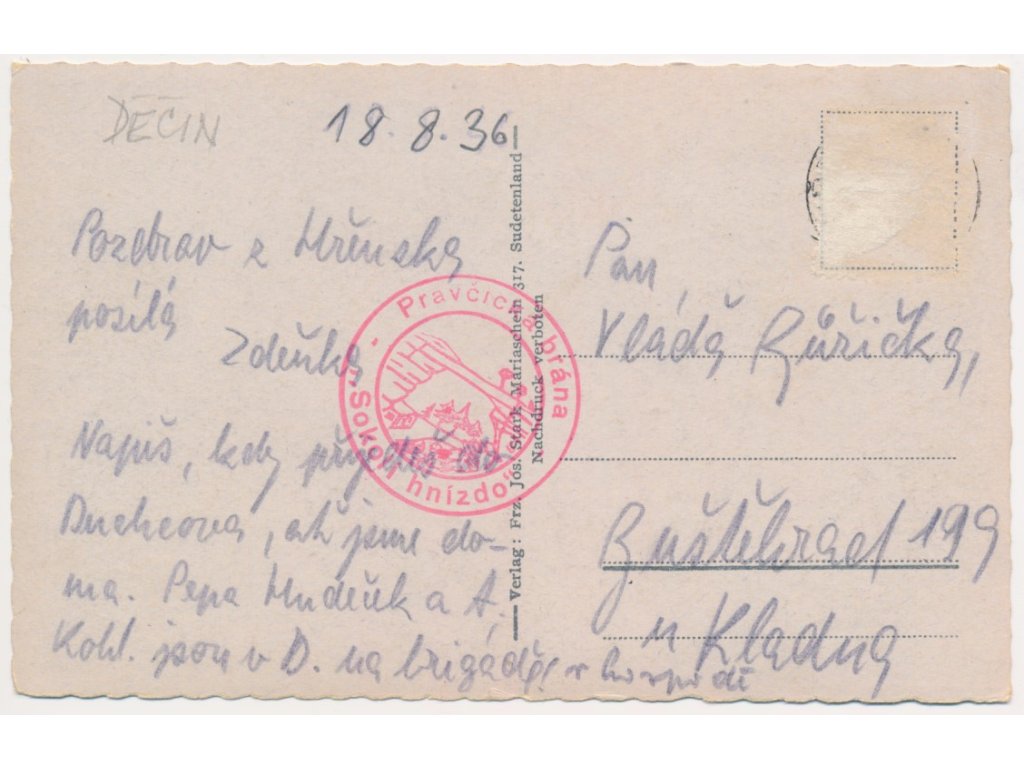 DĚČIN
18. 8. 36
Pozdrav z Hřenska
posílá
Zdeňka
Napiš, kdy přijedeš do
Duchcova, ať jsme do-
ma. Pepa Hudeček a A.
Kohl. jsou v D. na brigádě, v hospodě
Pravčická brána
„Sokolí hnízdo“
Verlag: Frz. Jos. Stark Mariaschein 317. Sudetenland
Nachdruck verboten
Pan
Vláďa Růžička,
Buštěhrad 199
u Kladna